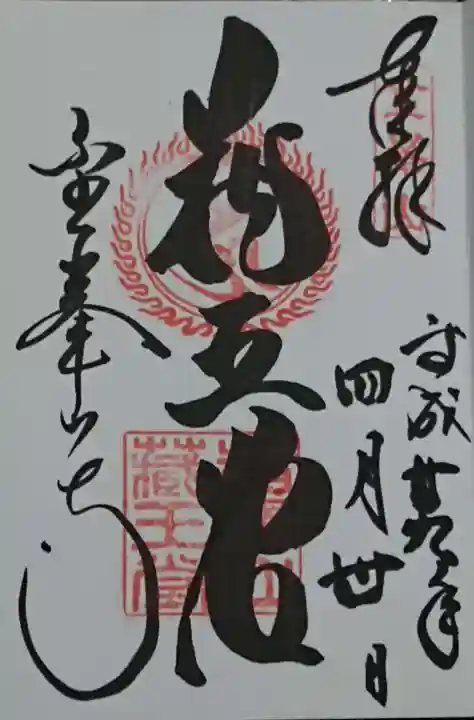 奉拝
平成廿九年
四月丗日
蔵王堂
金峯山寺
藏王堂